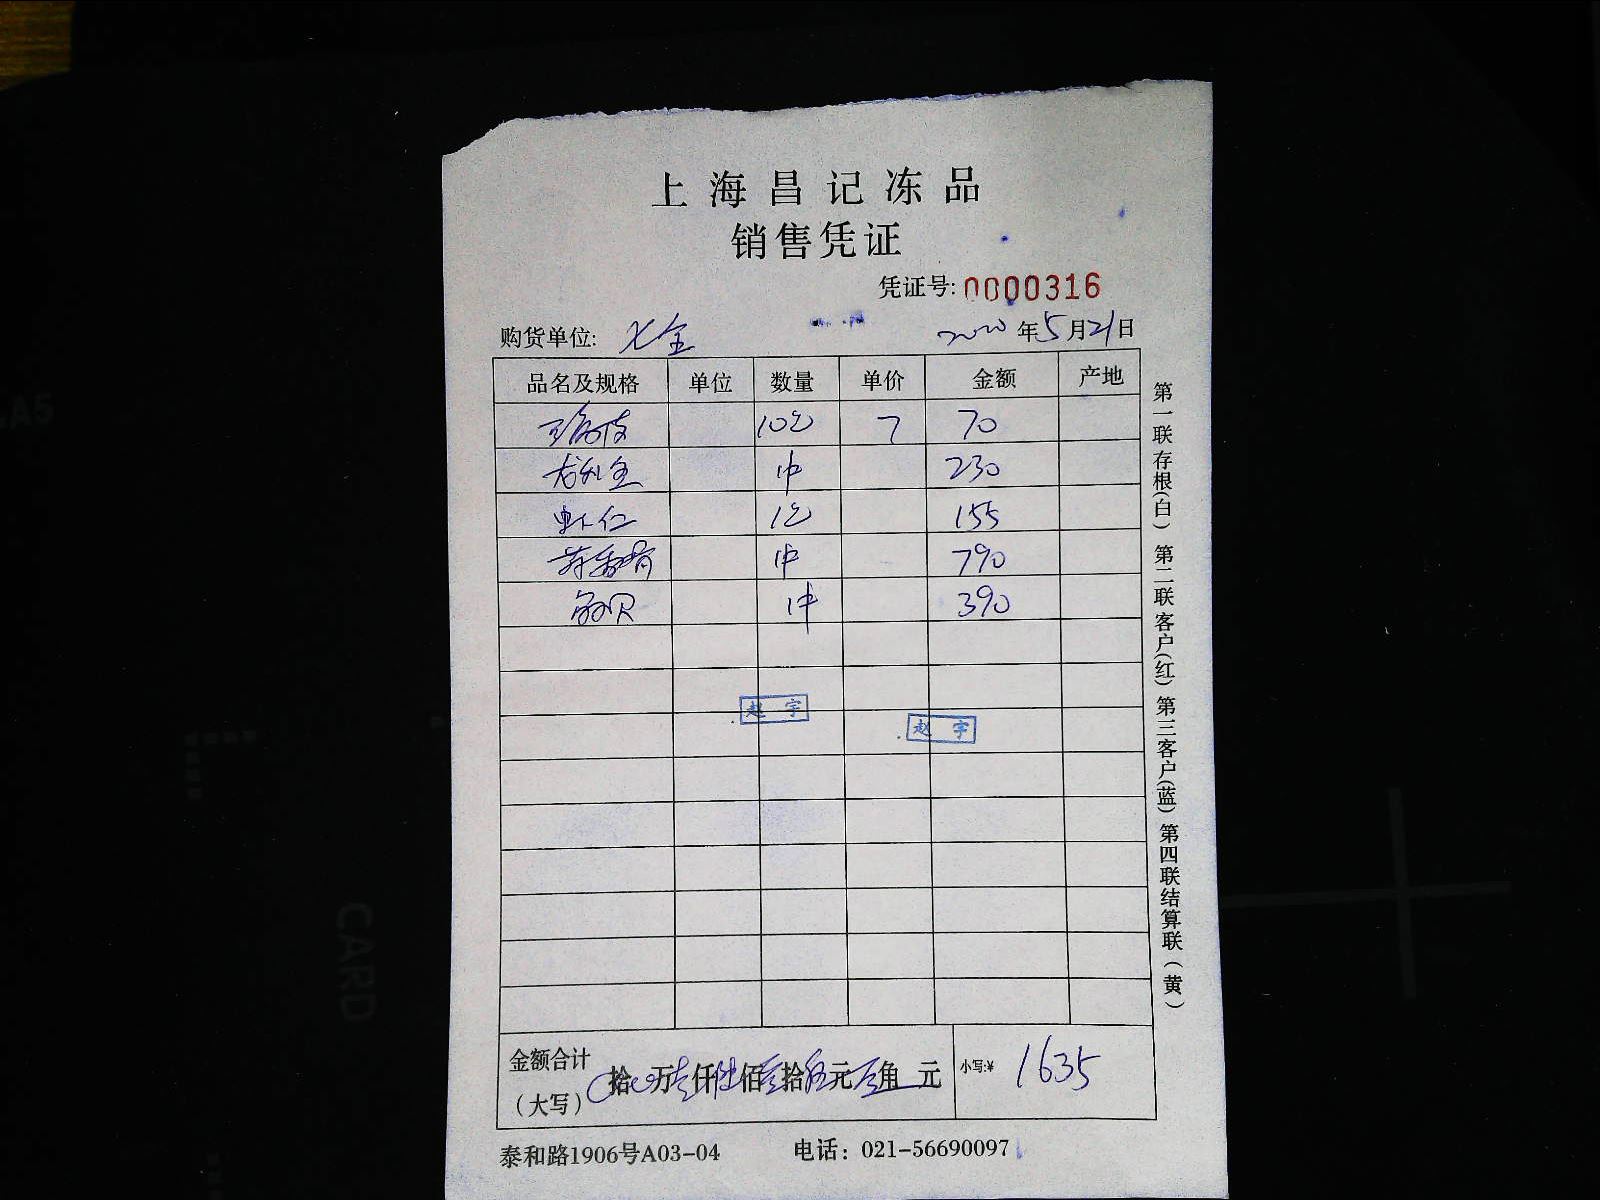 上海昌记冻品
销售凭证
凭证号: 0000316
购货单位: 七全 2020年5月21日
品名及规格 单位 数量 单价 金额 产地
10包 7 70
龙利鱼 1件 230
虾仁 1包 155
1件 790
扇贝 1件 390
赵 宇
赵 宇
金额合计
(大写) 拾 万壹仟陆佰叁拾伍元 角 元 小写:¥ 1635
泰和路1906号A03-04 电话: 021-56690097
第一联存根(白) 第二联客户(红) 第三客户(蓝) 第四联结算联(黄)